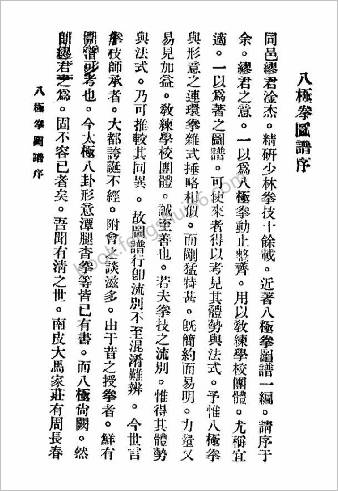 八極拳圖譜序
同邑繆君淦杰。精研少林拳技十餘載。近著八極拳圖譜一編。請序于
余。繆君之意。一以爲八極拳動止整齊。用以敎練學校團體。尤稱宜
適。一以爲著之圖譜。可使來者得以考見其體勢與法式。予惟八極拳
與形意之連環拳雜式捶略相似。而剛猛特甚。旣簡約而易明。力量又
易見加益。敎練學校團體。誠至善也。若夫拳技之流別。惟得其體勢
與法式。乃可推較其同異。故圖譜行卽流別不至混淆難辨。今世言
拳技師承者。大都誇誕不經。附會之談滋多。由于昔之授拳者。鮮有
圖譜可考也。今太極八卦形意潭腿査拳等皆已有書。而八極尙闕。然
則繆君之爲。固不容已者矣。吾聞有淸之世。南皮大馬家莊有周長春
八極拳圖譜序